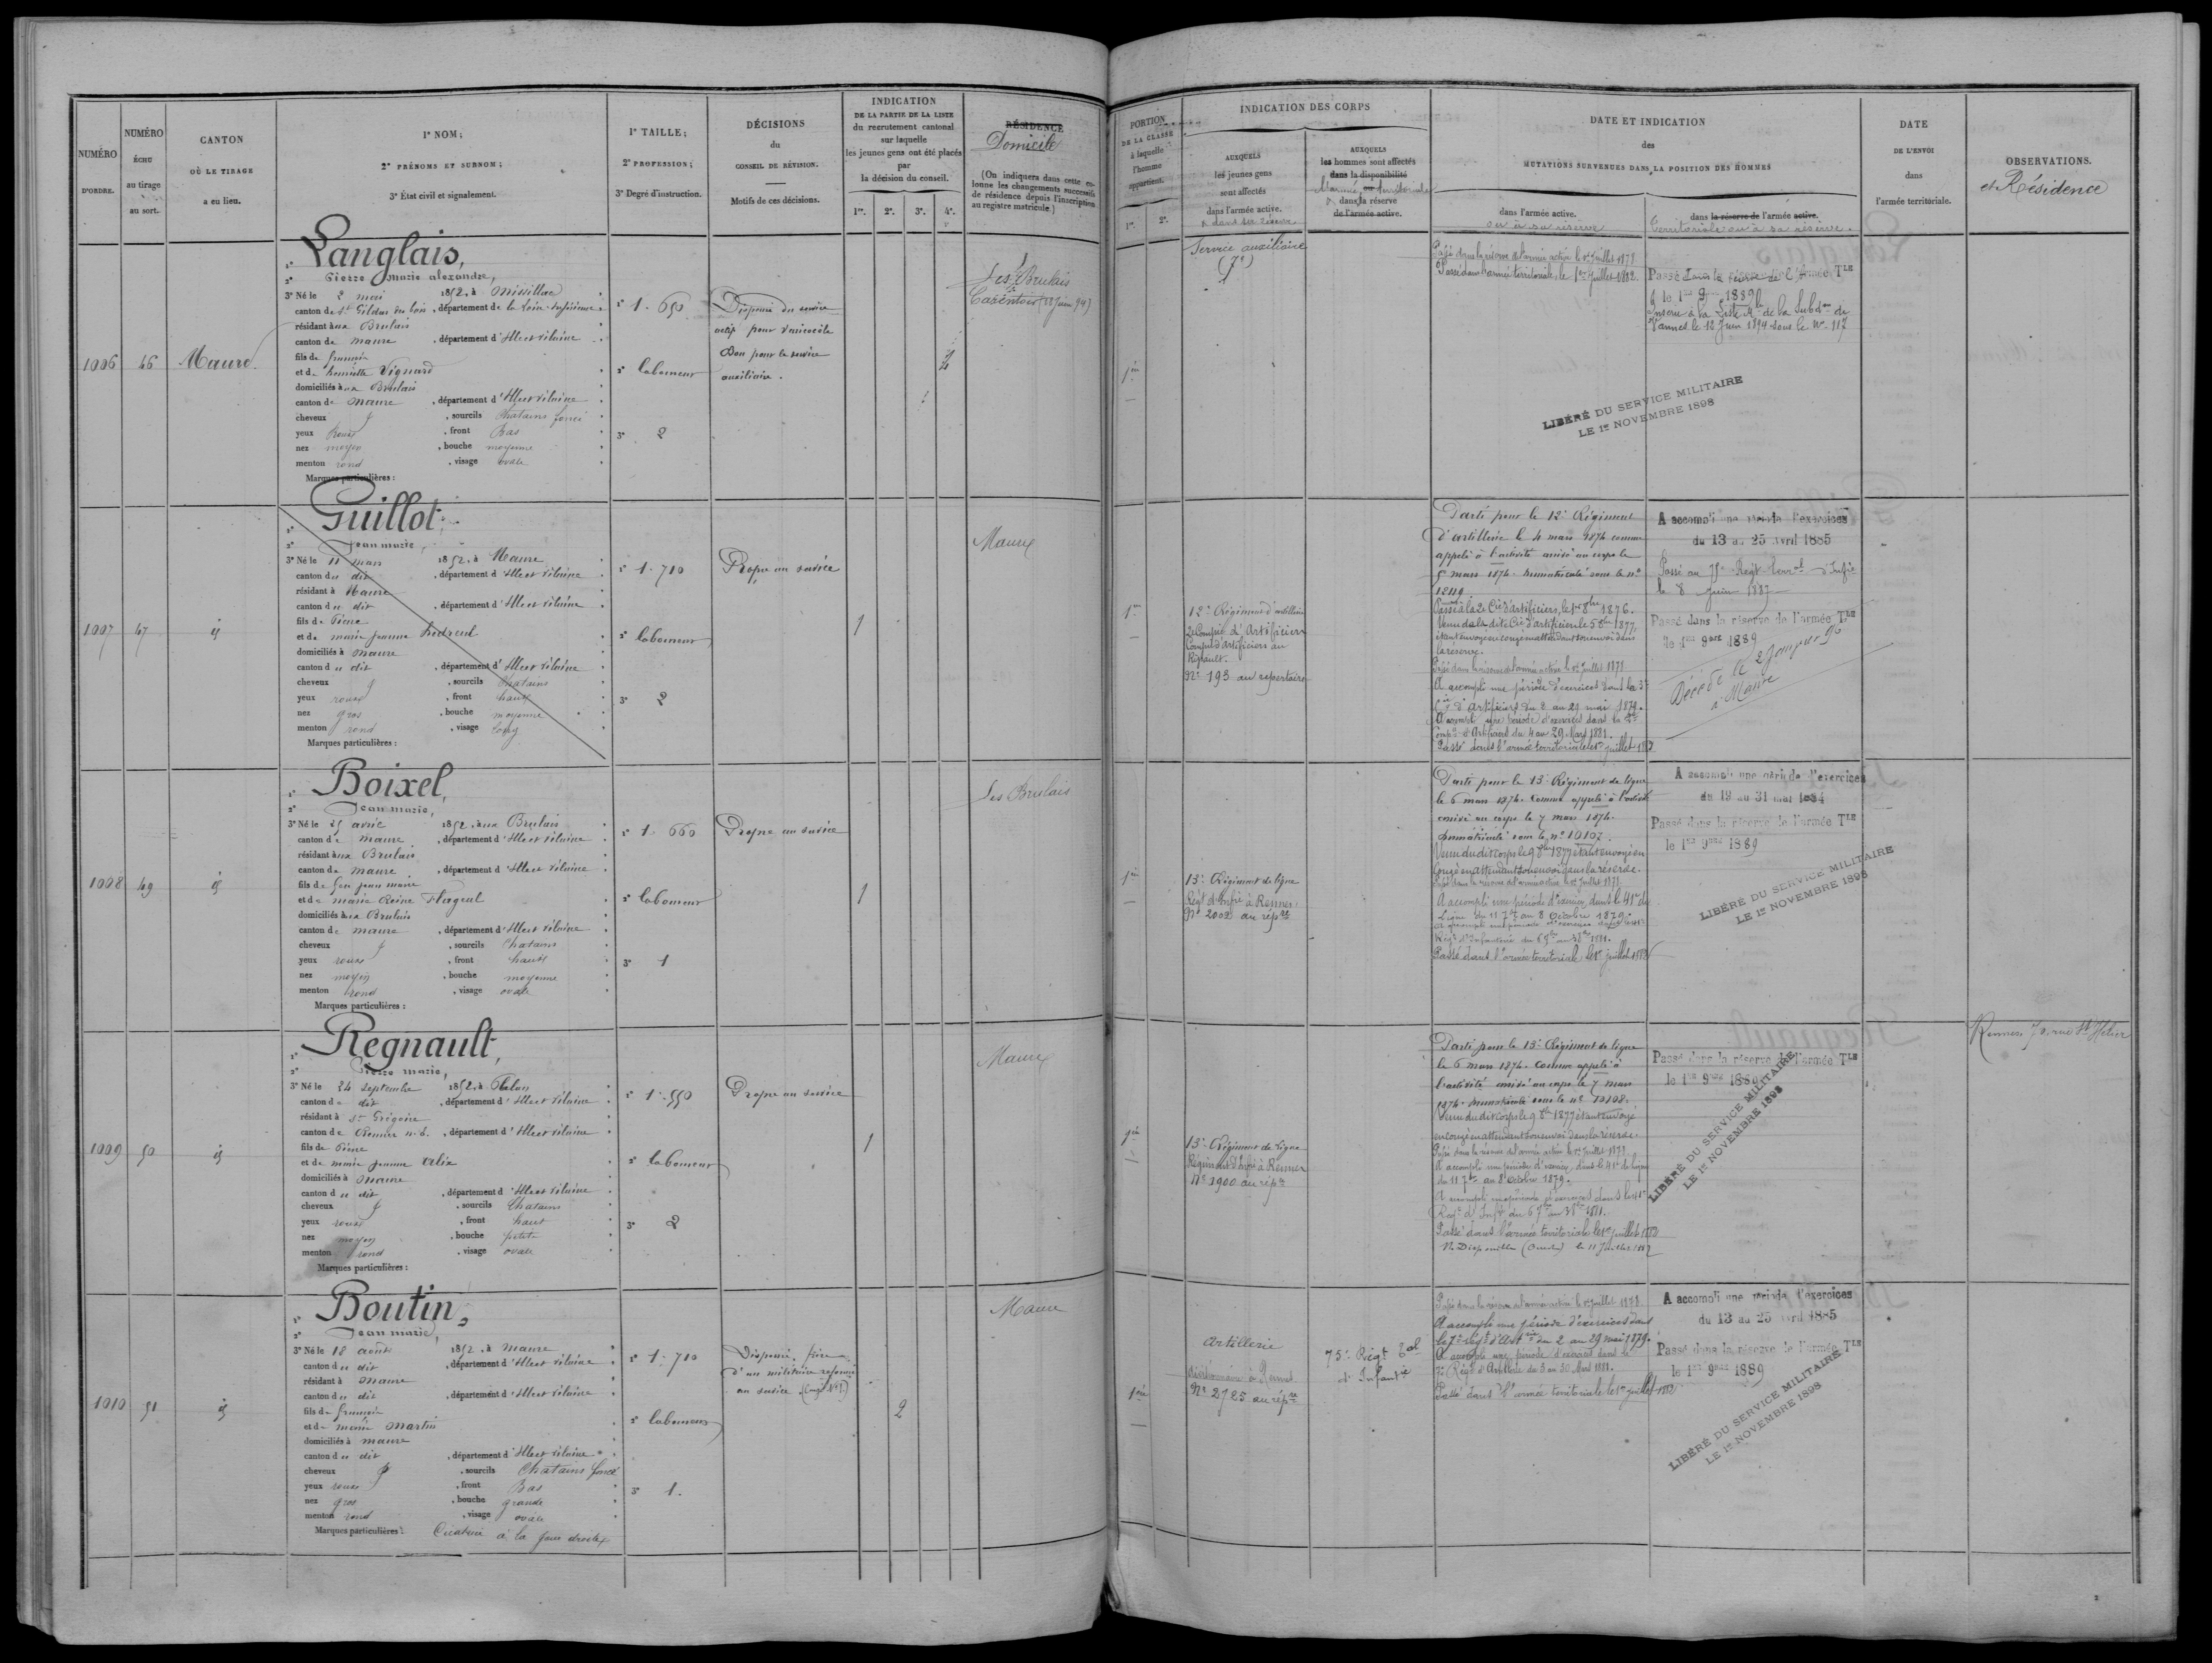 NUMÉRO
D'ORDRE.
NUMÉRO
ÉCHU
au tirage
au sort.
CANTON
OÙ LE TIRAGE
a eu lieu.
1° NOM;
2° PRÉNOMS ET SURNOM;
3° État civil et signalement.
1° TAILLE;
2° PROFESSION;
3° Degré d'instruction.
DÉCISIONS
du
CONSEIL DE RÉVISION.
Motifs de ces décisions.
INDICATION
DE LA PARTIE DE LA LISTE
du recrutement cantonal
sur laquelle
les jeunes gens ont été placés
par
la décision du conseil.
1re. 2e. 3e. 4e.
RÉSIDENCE
Domicile
(On indiquera dans cette co-
lonne les changements successifs
de résidence depuis l'inscription
au registre matricule.)
1006
46
Maure.
1° Langlais,
2° Pierre Marie alexandre,
3° Né le 2 mai 1852, à Missillac
canton de St Gildas des bois, département de la Loire-Inférieure
résidant aux Brulais
canton de Maure, département d'Ille et Vilaine
fils de françois
et de henriette Vignard
domiciliés aux Brulais
canton de Maure, département d'Ille et Vilaine
cheveux, sourcils Chatains foncé
yeux Roux, front Bas
nez moyen, bouche moyenne
menton rond, visage ovale
Marques particulières :
1° 1. 650
2° laboureur
3° 2
Dispensé du service
actif pour varicocèle
Bon pour le service
auxiliaire.
4
Les Brulais
Carentoir (12 Juin 94)
1007
47
id
1° Guillot,
2° Jean marie,
3° Né le 11 mars 1852, à Maure
canton du dit, département d'Ille et Vilaine
résidant à Maure
canton du dit, département d'Ille et Vilaine
fils de Pierre
et de marie jeanne
domiciliés à Maure
canton du dit, département d'Ille et Vilaine
cheveux, sourcils Chatains
yeux roux, front haut
nez gros, bouche moyenne
menton rond, visage long
Marques particulières :
1° 1. 710
2° laboureur
3° 2
Propre au service
1
Maure
1008
49
id
1° Boixel,
2° Jean marie,
3° Né le 25 avril 1852, aux Brulais
canton de Maure, département d'Ille et Vilaine
résidant aux Brulais
canton de Maure, département d'Ille et Vilaine
fils de feu jean marie
et de marie Reine Flageul
domiciliés aux Brulais
canton de Maure, département d'Ille et Vilaine
cheveux, sourcils Chatains
yeux roux, front haut
nez moyen, bouche moyenne
menton rond, visage ovale
Marques particulières :
1° 1. 660
2° laboureur
3° 1
Propre au service
1
Les Brulais
1009
50
id
1° Regnault,
2° Pierre marie,
3° Né le 24 septembre 1852, à Plélan
canton du dit, département d'Ille et Vilaine
résidant à St Grégoire
canton de Rennes n.E., département d'Ille et Vilaine
fils de Pierre
et de marie jeanne Alix
domiciliés à Maure
canton du dit, département d'Ille et Vilaine
cheveux, sourcils Chatains
yeux roux, front haut
nez moyen, bouche petite
menton rond, visage ovale
Marques particulières :
1° 1. 550
2° laboureur
3° 2
Propre au service
1
Maure
1010
51
id
1° Boutin,
2° Jean marie,
3° Né le 18 août 1852, à Maure
canton du dit, département d'Ille et Vilaine
résidant à Maure
canton du dit, département d'Ille et Vilaine
fils de françois
et de marie Martin
domiciliés à Maure
canton du dit, département d'Ille et Vilaine
cheveux, sourcils Chatains foncé
yeux roux, front Bas
nez gros, bouche grande
menton rond, visage ovale
Marques particulières : Cicatrice à la joue droite
1° 1. 710
2° laboureur
3° 1.
Dispensé, frère
d'un militaire réformé
au service
2
Maure
PORTION
DE LA CLASSE
à laquelle
l'homme
appartient.
1re. 2e.
INDICATION DES CORPS
AUXQUELS
les jeunes gens
sont affectés
dans l'armée active.
& dans sa réserve
AUXQUELS
les hommes sont affectés
dans la disponibilité
ou
l'armée territoriale
& dans la réserve
de l'armée active.
DATE ET INDICATION
des
MUTATIONS SURVENUES DANS LA POSITION DES HOMMES
dans l'armée active.
ou à sa réserve
dans la réserve de l'armée active.
territoriale ou à sa réserve.
DATE
DE L'ENVOI
dans
l'armée territoriale.
OBSERVATIONS.
et Résidence
1ère
Service auxiliaire
Passé dans la réserve de l'armée active le 1er Juillet 1878.
Passé dans l'armée territoriale, le 1er Juillet 1882.
Passé dans la réserve de l'Armée Tle
le 1er 9bre 1889
Inscrit à la Liste de la Subdon de
Vannes le 12 Juin 1894 sous le No 117
LIBÉRÉ DU SERVICE MILITAIRE
LE 1er NOVEMBRE 1898
1re
12e Régiment d'artillerie
2e Compie d'Artificiers
No 193 au répertoire
Parti pour le 12e Régiment
d'artillerie le 4 mars 1874 comme
appelé à l'activité arrivé au corps le
5 mars 1874. Immatriculé sous le no
Passé à la 2e Cie d'artificiers, le 1er 8bre 1876.
Venu de la dite Cie d'artificiers le 5 8bre 1877,
étant envoyé en congé en attendant son envoi dans
la réserve.
Passé dans la réserve de l'armée active le 1er Juillet 1878.
A accompli une période d'exercices dans la 3e
Cie d'Artificiers du 2 au 29 mai 1879.
A accompli une période d'exercices dans la
Compie d'Artificiers du 4 au 29 Mars 1881.
Passé dans l'armée territoriale le 1er juillet
A accompli une période d'exercices
du 13 au 25 avril 1885
Passé au 75e Régt Terral d'Infie
le 8 Juin 1887
Passé dans la réserve de l'armée Tle
le 1er 9bre 1889
Décédé le 2 Janvier 90
à Maure
1ère
13e Régiment de ligne
Régt d'Infie à Rennes.
No 2002 au répre
Parti pour le 13e Régiment de ligne
le 6 mars 1874. Comme appelé à l'activité
arrivé au corps le 7 mars 1874.
Immatriculé sous le no 10107.
Venu du dit corps le 9 8bre 1877 étant envoyé en
congé en attendant son envoi dans la réserve.
Passé dans la réserve de l'armée active le 1er Juillet 1878.
A accompli une période d'exercices dans le 41e de
Ligne du 11 7bre au 8 Octobre 1879.
Passé dans l'armée territoriale le 1er juillet 1882
A accompli une période d'exercices
du 19 au 31 mai 1884
Passé dans la réserve de l'armée Tle
le 1er 9bre 1889
LIBÉRÉ DU SERVICE MILITAIRE
LE 1er NOVEMBRE 1898
1ère
13e Régiment de ligne
Régiment d'Infie à Rennes
No 1900 au répre
Parti pour le 13e Régiment de ligne
le 6 mars 1874. Comme appelé à
l'activité arrivé au corps le 7 mars
1874. Immatriculé sous le no 10108.
Venu du dit corps le 9 8bre 1877 étant envoyé
en congé en attendant son envoi dans la réserve.
Passé dans la réserve de l'armée active le 1er Juillet 1878.
A accompli une période d'exercices dans le 41e de ligne
du 11 7bre au 8 octobre 1879.
A accompli une période d'exercices dans le 41e
Régt d'Infie du 6 7bre au 1881.
Passé dans l'armée territoriale le 1er juillet 1882
Passé dans la réserve de l'armée Tle
le 1er 9bre 1889
LIBÉRÉ DU SERVICE MILITAIRE
LE 1er NOVEMBRE 1898
Rennes, 70, rue St Hélier
1ère
Artillerie
Divisionnaire à Rennes
No 2725 au répre
75e Régt Tal
d'Infantie
Passé dans la réserve de l'armée active le 1er juillet 1878.
A accompli une période d'exercices dans
le 7e régt d'Artrie du 2 au 29 mai 1879.
A accompli une période d'exercices dans le
7e Régt d'Artillerie du 3 au 30 Mars 1881.
Passé dans l'armée territoriale le 1er juillet 1882
A accompli une période d'exercices
du 13 au 25 avril 1885
Passé dans la réserve de l'armée Tle
le 1er 9bre 1889
LIBÉRÉ DU SERVICE MILITAIRE
LE 1er NOVEMBRE 1898